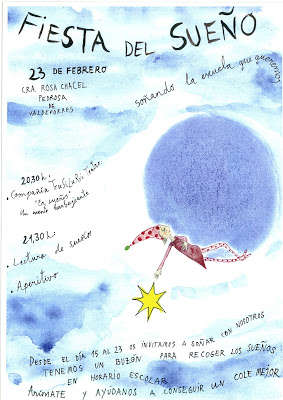 FIESTA DEL SUEÑO
23 DE FEBRERO
soñando la escuela que queremos
CRA. ROSA CHACEL
PEDROSA
DE
VALDEPORRES
20,30 h:
• Compañía Teatro
"En sueños"
Un menú
21,30 h:
• Lectura de sueños
• Aperitivo
DESDE EL DÍA 15 AL 23 OS INVITAMOS A SOÑAR CON NOSOTROS
TENEMOS UN BUZÓN PARA RECOGER LOS SUEÑOS
EN HORARIO ESCOLAR
ANÍMATE Y AYÚDANOS A CONSEGUIR UN COLE MEJOR